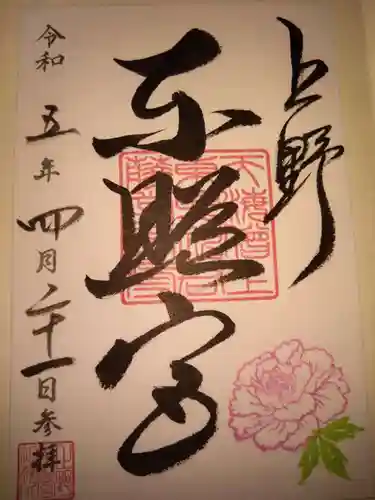 上野
東照宮
令和五年四月二十一日参拝